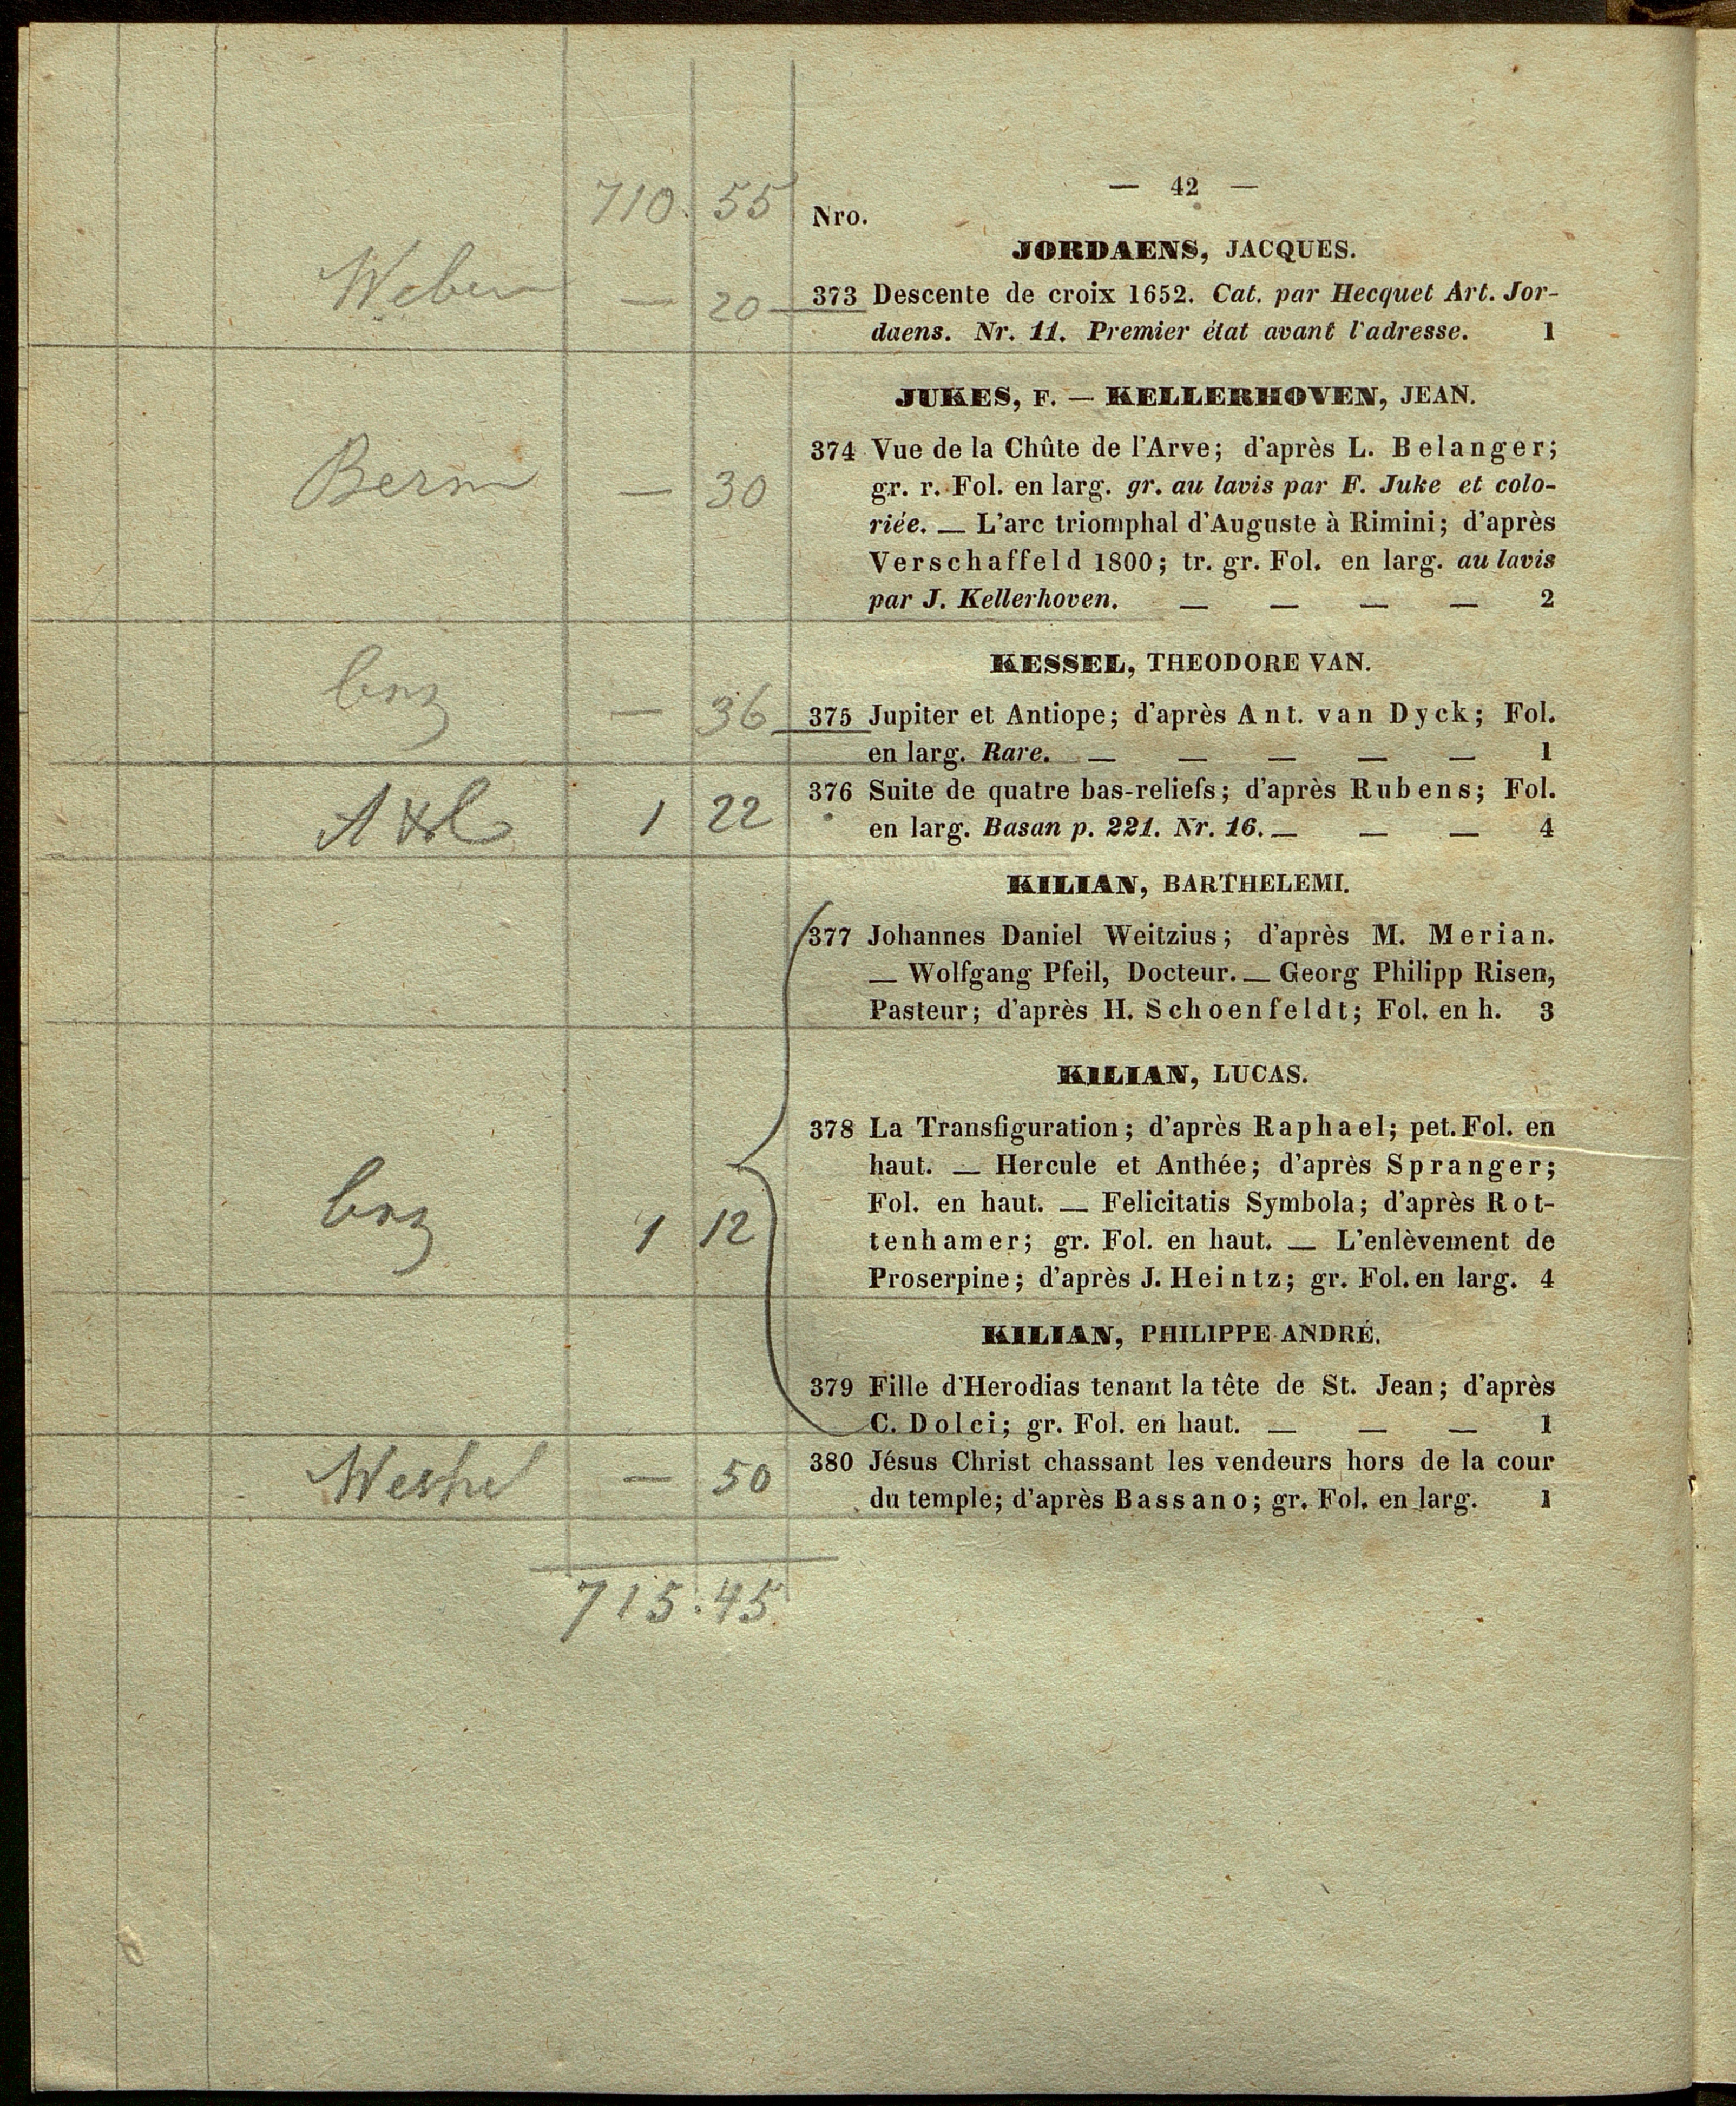 — 42 —
710. 55
Nro.
JORDAENS, JACQUES.
Weber — 20
373 Descente de croix 1652. Cat. par Hecquet Art. Jor-
daens. Nr. 11. Premier état avant l'adresse. 1
JUKES, F. — KELLERHOVEN, JEAN.
— 30
374 Vue de la Chûte de l'Arve; d'après L. Belanger;
gr. r. Fol. en larg. gr. au lavis par F. Juke et colo-
riée. — L'arc triomphal d'Auguste à Rimini; d'après
Verschaffeld 1800; tr. gr. Fol. en larg. au lavis
par J. Kellerhoven. — — — — 2
KESSEL, THEODORE VAN.
— 36
375 Jupiter et Antiope; d'après Ant. van Dyck; Fol.
en larg. Rare. — — — — — 1
1 22
376 Suite de quatre bas-reliefs; d'après Rubens; Fol.
en larg. Basan p. 221. Nr. 16. — — — 4
KILIAN, BARTHELEMI.
377 Johannes Daniel Weitzius; d'après M. Merian.
— Wolfgang Pfeil, Docteur. — Georg Philipp Risen,
Pasteur; d'après H. Schoenfeldt; Fol. en h. 3
KILIAN, LUCAS.
378 La Transfiguration; d'après Raphael; pet. Fol. en
haut. — Hercule et Anthée; d'après Spranger;
Fol. en haut. — Felicitatis Symbola; d'après Rot-
1 12
tenhamer; gr. Fol. en haut. — L'enlèvement de
Proserpine; d'après J. Heintz; gr. Fol. en larg. 4
KILIAN, PHILIPPE ANDRÉ.
379 Fille d'Herodias tenant la tête de St. Jean; d'après
C. Dolci; gr. Fol. en haut. — — — 1
— 50
380 Jésus Christ chassant les vendeurs hors de la cour
du temple; d'après Bassano; gr. Fol. en larg. 1
715.45